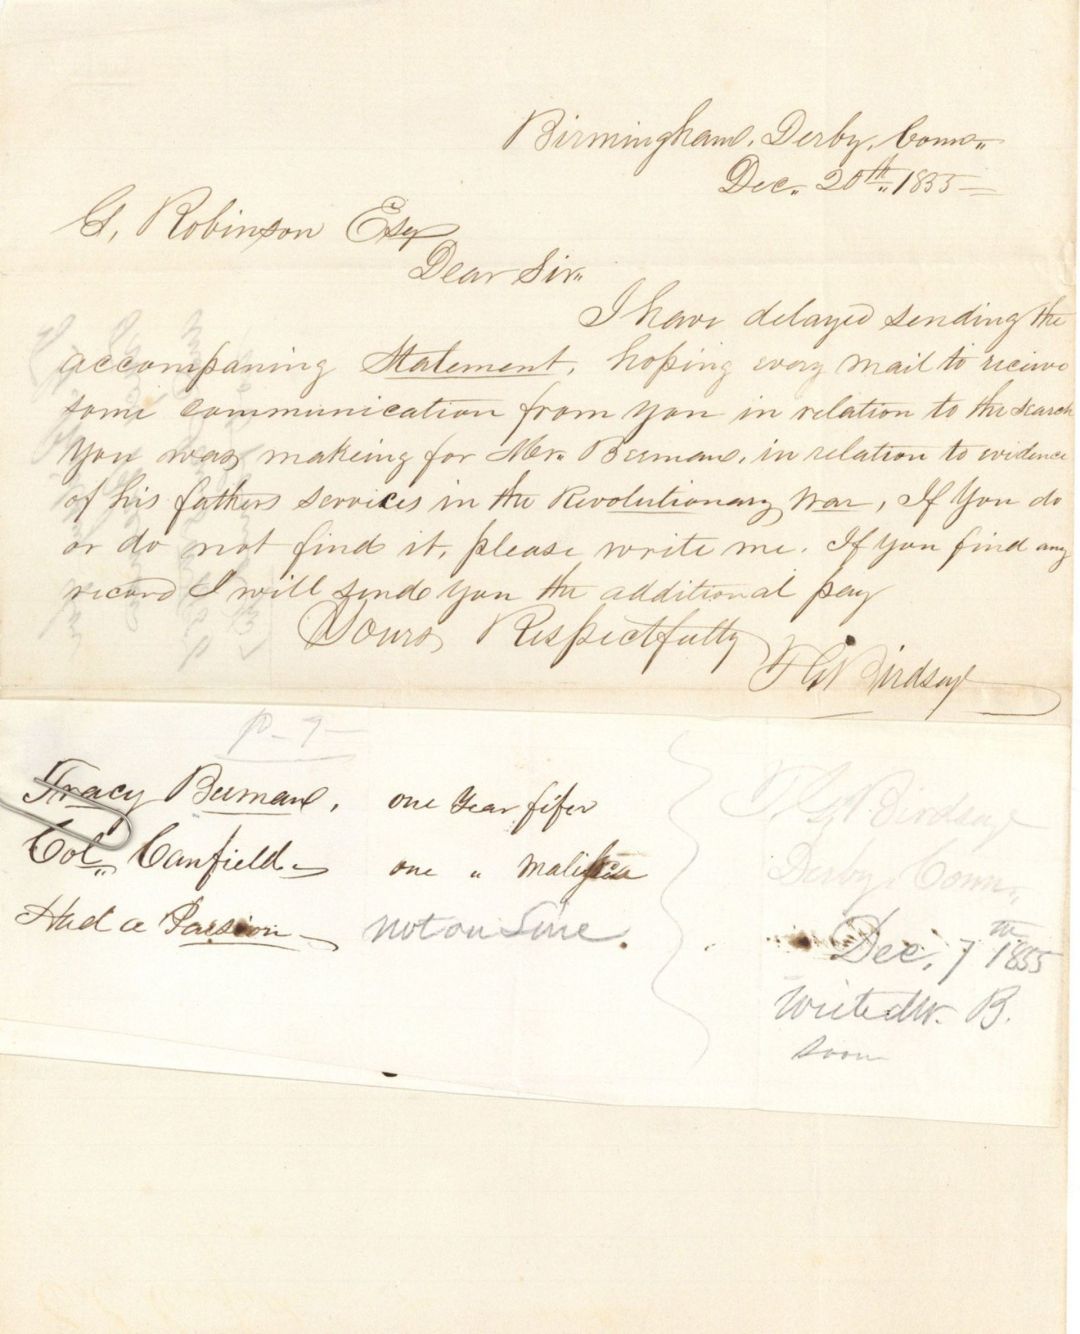 Birmingham, Derby, Conn.
Dec. 20th, 1855
G, Robinson Esq
Dear Sir.
I have delayed sending the
accompaning Statement, hoping every mail to recieve
some communication from you in relation to the search
You was making for Mr. Beeman, in relation to evidence
of his fathers services in the Revolutionary War, If You do
or do not find it, please write me. If You find any
record I will send you the additional pay
Yours Respectfully
T G Birdsey
P-7-
Tracy Beeman, one year fifer
Col. Canfield one " 
Had a Parsion not on Line.
T G Birdsey
Derby, Conn.
Dec, 7th 1855
Write Mr. B.
soon